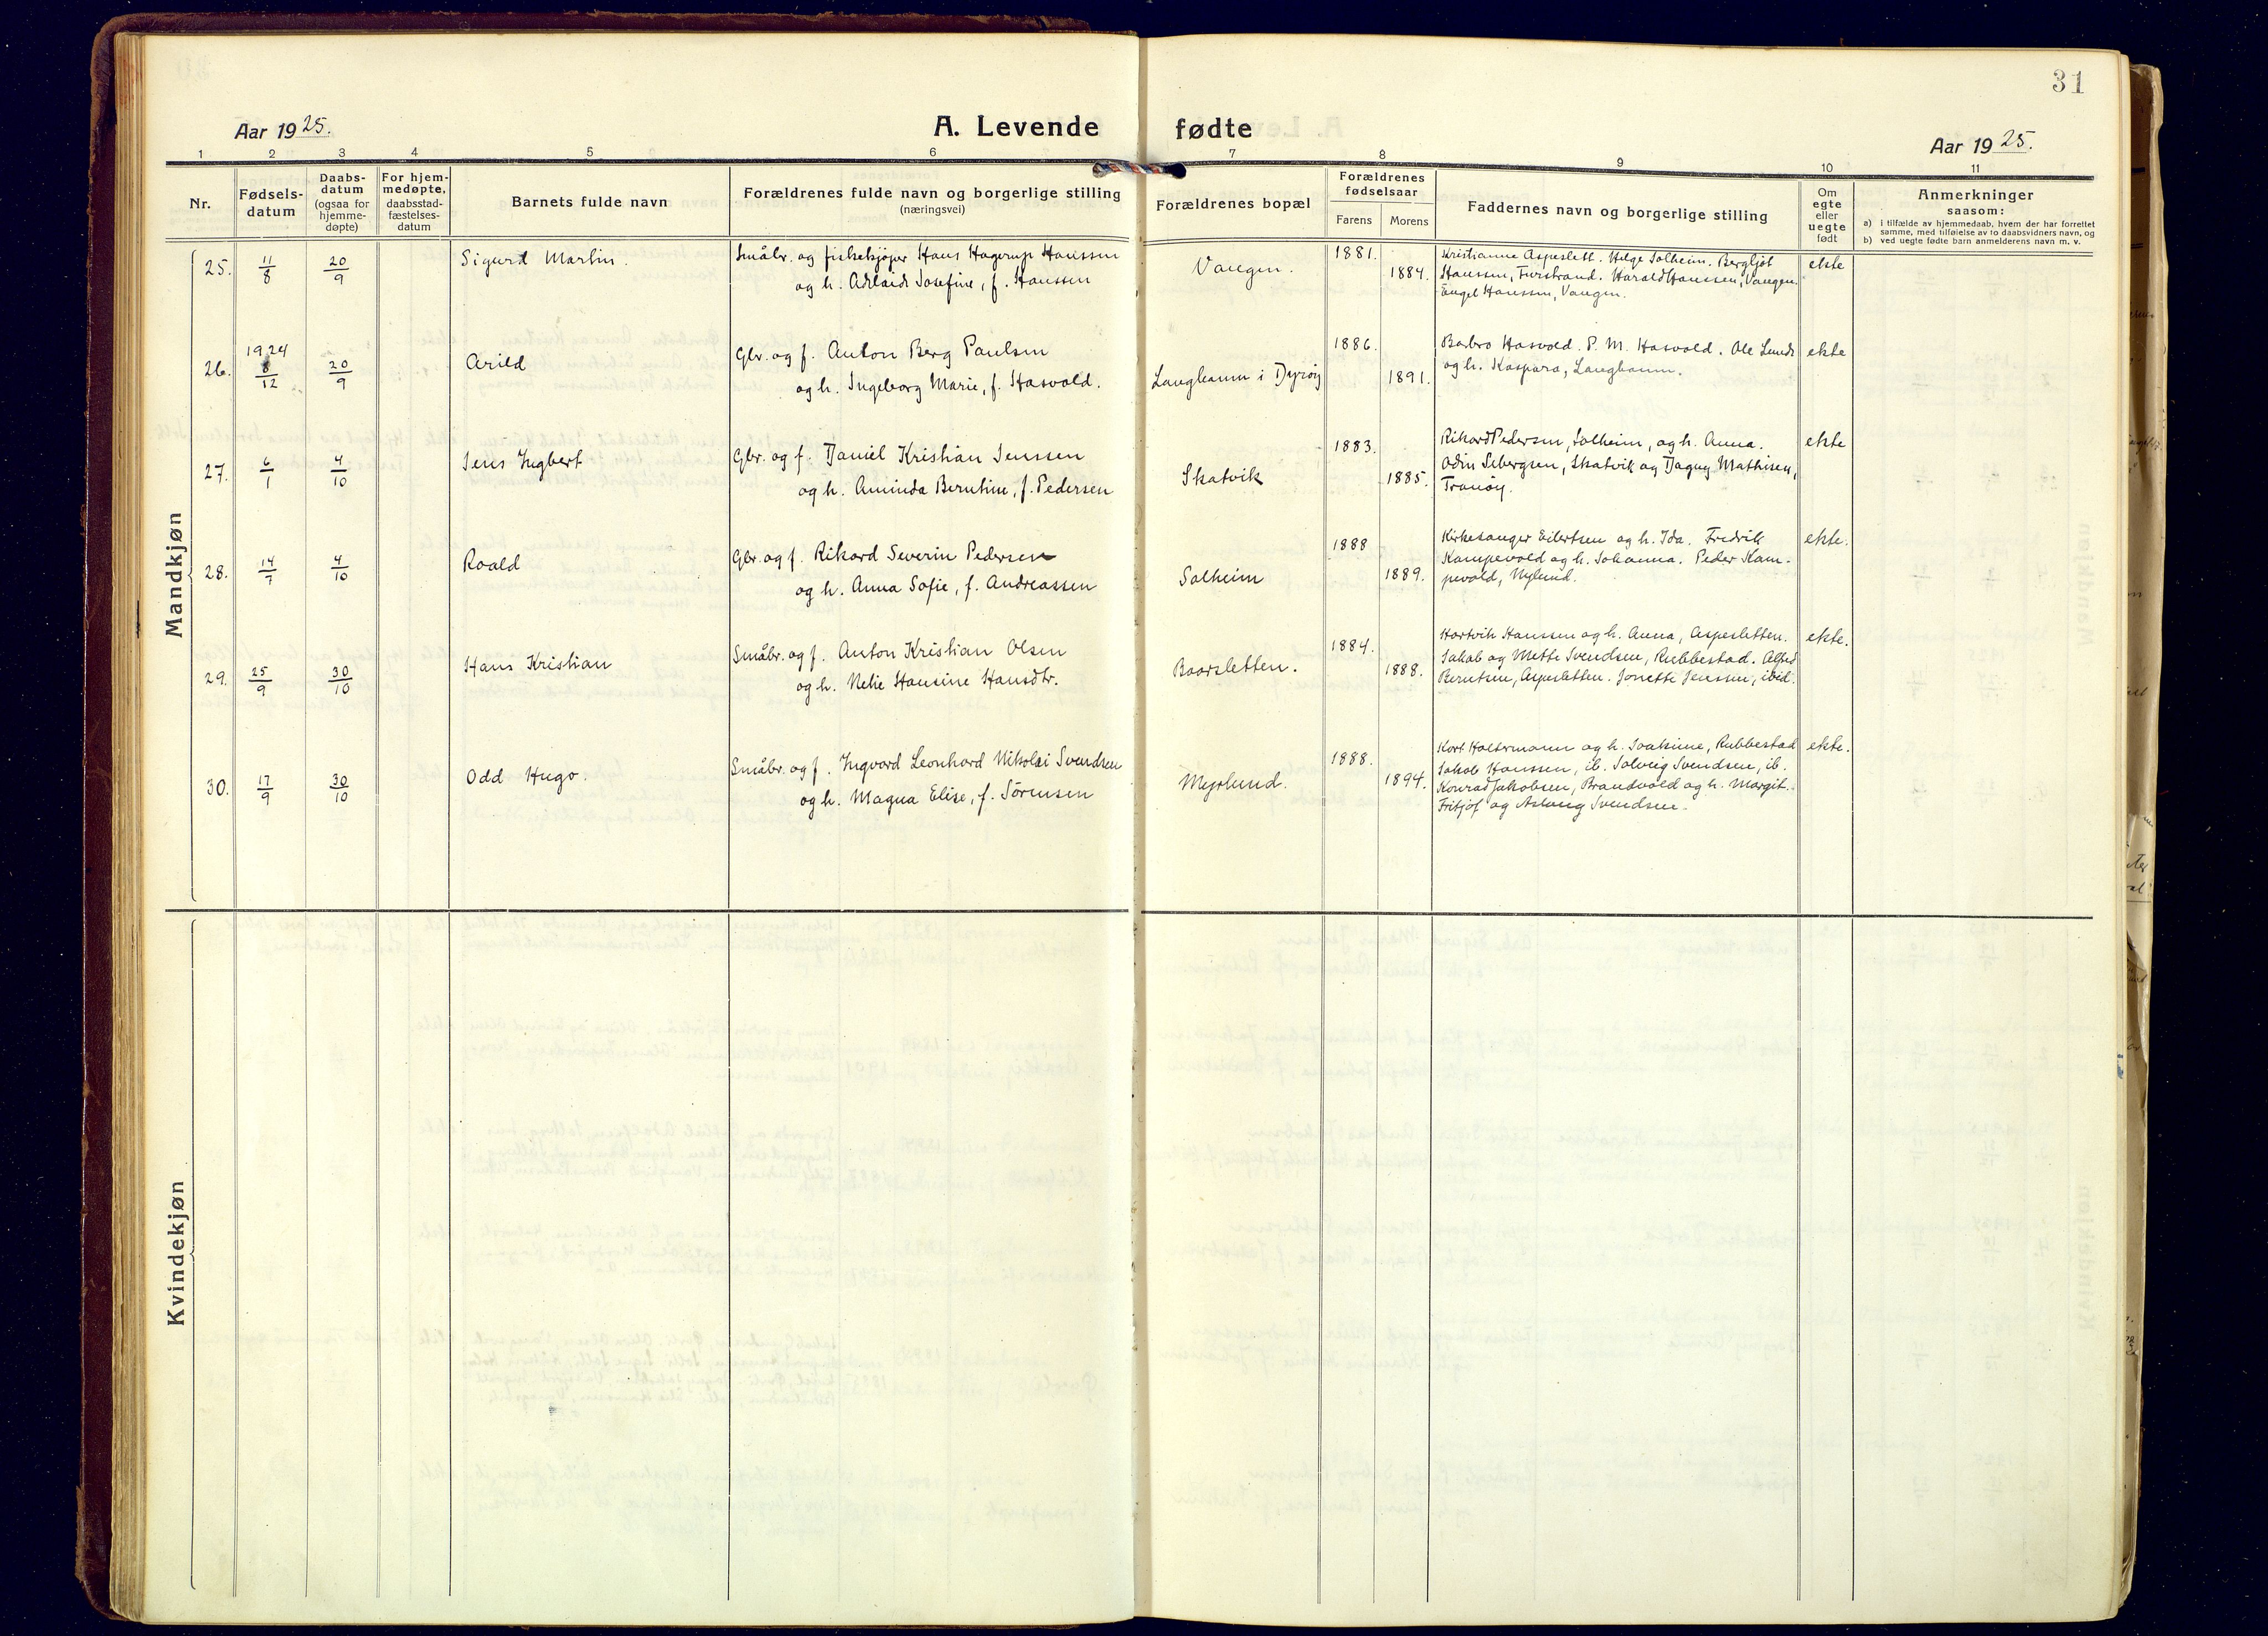 31
Aar 1925.
A. Levende fødte
Aar 1925.
1 2 3 4 5 6 7 8 9 10 11
Nr.
Fødsels-
datum
Daabs-
datum
(ogsaa for
hjemme-
døpte)
For hjem-
medøpte,
daabsstad-
fæstelses-
datum
Barnets fulde navn
Forældrenes fulde navn og borgerlige stilling
(næringsvei)
Forældrenes bopæl
Forældrenes
fødselsaar
Farens Morens
Faddernes navn og borgerlige stilling
Om
egte
eller
uegte
født
Anmerkninger
saasom:
a) i tilfælde av hjemmedaab, hvem der har forrettet
samme, med tilføielse av to daabsvidners navn, og
b) ved uegte fødte barn anmelderens navn m. v.
Mandkjøn
25. 11/8 20/9 Sigurd Martin.
Småbr. og fiskekjøper Hans Hagerup Hanssen
og h. Adelaide Josefine, f. Hanssen
Vangen. 1881. 1884.
Kristianne Aspeslett. Helge Solheim. Bergljot
Hanssen, Furstrand. Harald Hanssen, Vangen.
Engel Hanssen, Vangen.
ekte
26. 1924 8/12 20/9 Arild
Gbr. og f. Anton Berg Paulsen
og h. Ingeborg Marie, f. Hasvold.
Langhamn i Dyrøy 1886. 1891.
Barbro Hasvold. P. M. Hasvold. Ole Lunds
og h. Kaspara, Langhamn.
ekte
27. 6/1 4/10 Jens Ingbert
Gbr. og f. Daniel Kristian Jenssen
og h. Aminda Berntine, f. Pedersen
Skatvik 1883. 1885.
Rikard Pedersen, Solheim, og h. Anna.
Odin Sebergsen, Skatvik og Dagny Mathisen,
Tranøy.
ekte
28. 14/7 4/10 Roald
Gbr. og f. Rikard Severin Pedersen
og h. Anna Sofie, f. Andreassen
Solheim 1888 1889.
Kirkesanger Eilertsen og h. Ida. Fredrik
Kampevold og h. Johanna. Peder Kam-
pevold, Nylund.
ekte.
29. 25/9 30/10 Hans Kristian
Småbr. og f. Anton Kristian Olsen
og h. Nelie Hansine Hansdtr.
Baarsletten. 1884. 1888.
Hartvik Hanssen og h. Anna, Aspesletten.
Jakob og Mette Svendsen, Rubbestad. Alfred
Berntsen, Aspesletten. Jonette Jenssen, ibid.
ekte.
30. 17/9 30/10 Odd Hugo.
Småbr. og f. Ingvard Leonhard Nikolai Svendsen
og h. Magna Elise, f. Sørensen
Myrlund. 1888. 1894.
Kort Holtermann og h. Joakime, Rubbestad
Jakob Hanssen, ib. Solveig Svendsen, ib.
Konrad Jakobsen, Brandvold og h. Margit.
Fritjof og Aslaug Svendsen.
ekte.
Kvindekjøn